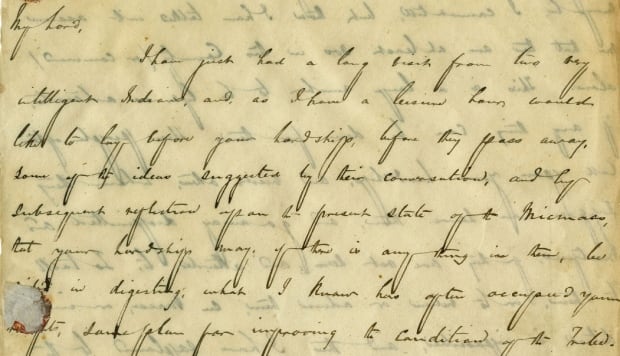 My Lord,
I have just had a long visit from two very
intelligent Indians, and, as I have a leisure hour, would
like to lay before your Lordship, before they pass away,
some of the ideas suggested by their conversation, and by
subsequent reflection upon the present state of the Micmacs,
that your Lordship may, if there is any thing in them, be
in digesting, what I know has often occupied your
some plan for improving the condition of the Tribe.